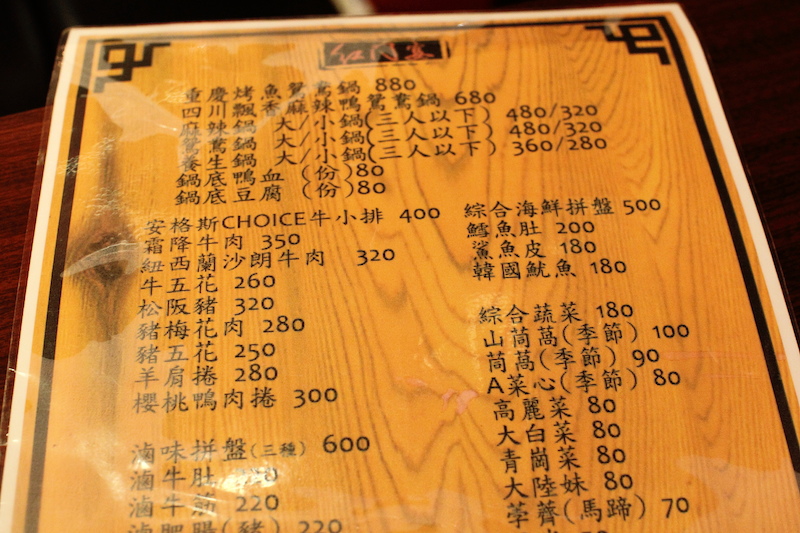 重慶烤魚鴛鴦鍋 880
四川飄香麻辣鴨鴛鴦鍋 680
麻辣鍋 大/小鍋(三人以下) 480/320
鴛鴦鍋 大/小鍋(三人以下) 480/320
養生鍋 大/小鍋(三人以下) 360/280
鍋底鴨血 (份)80
鍋底豆腐 (份)80
安格斯CHOICE牛小排 400
霜降牛肉 350
紐西蘭沙朗牛肉 320
牛五花 260
松阪豬 320
豬梅花肉 280
豬五花 250
羊肩捲 280
櫻桃鴨肉捲 300
滷味拼盤(三種) 600
滷牛肚
滷牛筋 220
滷肥腸(豬) 220
綜合海鮮拼盤 500
鱈魚肚 200
鯊魚皮 180
韓國魷魚 180
綜合蔬菜 180
山茼萵(季節) 100
茼萵(季節) 90
A菜心(季節) 80
高麗菜 80
大白菜 80
青崗菜 80
大陸妹 80
荸薺(馬蹄) 70